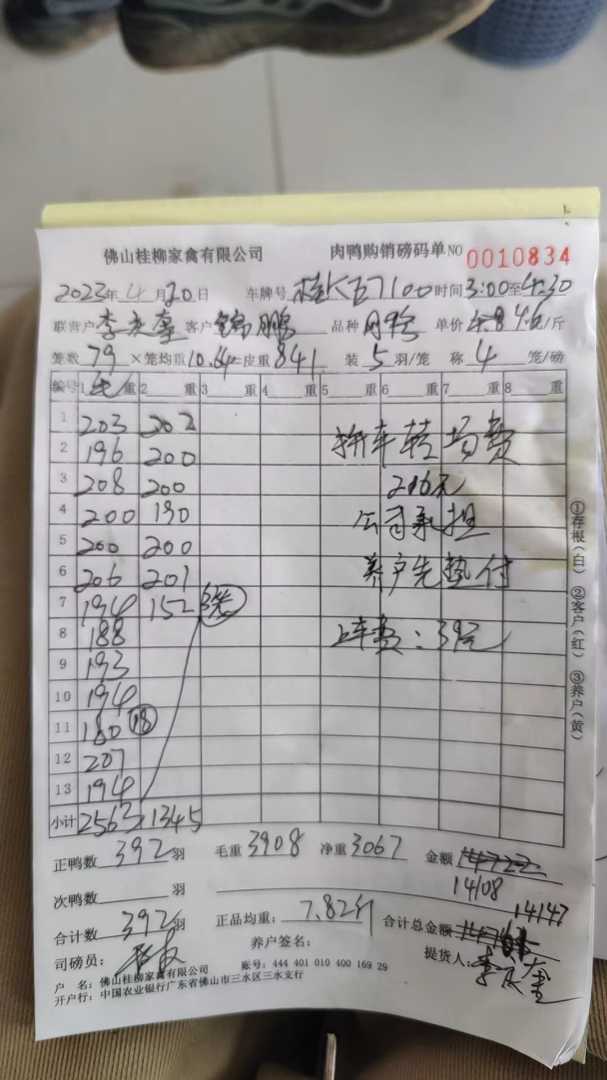 佛山桂柳家禽有限公司 肉鸭购销磅码单 NO 0010834
2023年4月20日 车牌号 时间3:00至4:30
联营户 客户 锦鹏 品种 单价 /斤
笼数79×笼均重10.64=皮重841 装5羽/笼 称4笼/磅
编号 1 毛重 2 重 3 重 4 重 5 重 6 重 7 重 8 重
1 203 202
2 196 200 拼车转场费
3 208 200 元
4 200 190 公司承担
5 200 200
6 206 201 养户先垫付
7 194 152
8 188 上车费:
9 193
10 194
11 180 18
12 207
13 194
小计 2563 1345
正鸭数392羽 毛重3908 净重3067 金额
14108
次鸭数 羽
14147
合计数392羽 正品均重:7.82斤 合计总金额
养户签名:
司磅员: 提货人:
户 名:佛山桂柳家禽有限公司 账号:444 401 010 400 169 29
开户行:中国农业银行广东省佛山市三水区三水支行
①存根(白) ②客户(红) ③养户(黄)